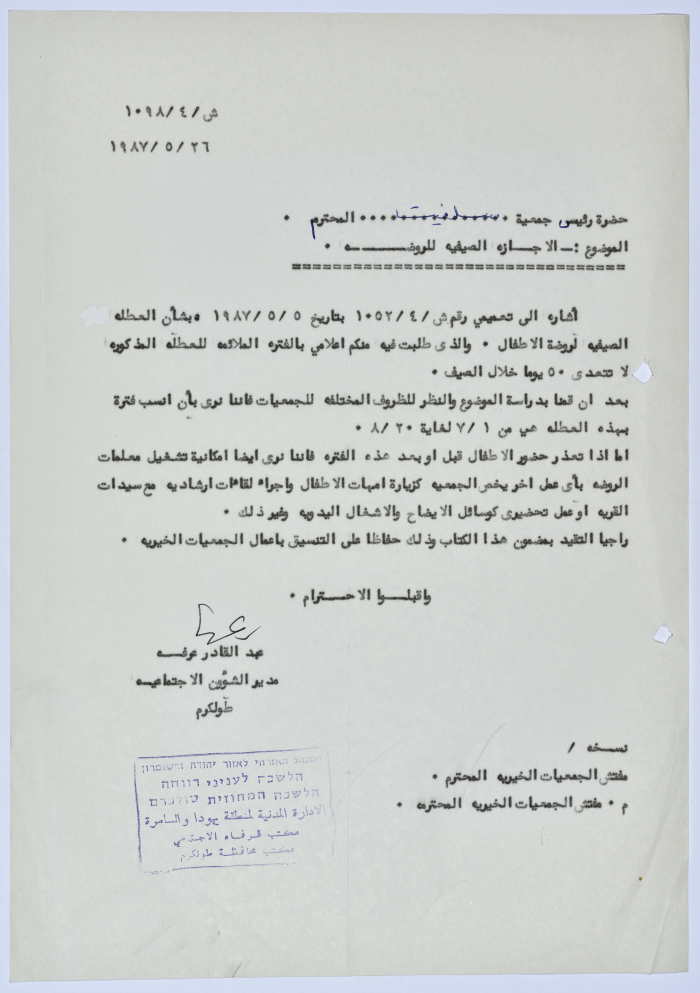 ش/٤/١٠٩٨
٢٦/٥/١٩٨٧
حضرة رئيس جمعية سلفيت المحترم ٠
الموضوع :ــ الاجــازه الصيفيه للروضــــــه ٠
================================
أشاره الى تعميمي رقم ش/٤/١٠٥٢ بتاريخ ٥/٥/١٩٨٧ ه بشأن العطله
الصيفيه لروضة الاطفال ٠ والذى طلبت فيه منكم اعلامي بالفتره الملائمه للعطله المذكوره
لا تتعدى ٥٠ يوما خلال الصيف ٠
بعد ان قمنا بدراسة الموضوع والنظر للظروف المختلفه للجمعيات فاننا نرى بأن انسب فترة
بهذه العطله هي من ٧/١ لغاية ٨/٢٠ ٠
اما اذا تعذر حضور الاطفال قبل او بعد هذه الفتره فاننا نرى ايضا امكانية تشغيل معلمات
الروضه بأى عمل اخر يخص الجمعيه كزيارة امهات الاطفال واجراء لقاءات ارشاديه مع سيدات
القريه او عمل تحضيرى كوسائل الايضاح والاشغال اليدويه وغير ذلك ٠
راجيا التقيد بمضمون هذا الكتاب وذلك حفاظا على التنسيق باعمال الجمعيات الخيريه ٠
واقبلــوا الاحتــرام ٠
عبد القادر عرفــه
مدير الشؤون الاجتماعيــه
طولكرم
نسخه /
مفتش الجمعيات الخيريه المحترم ٠
م ٠ مفتش الجمعيات الخيريه المحترمه ٠
המנהל האזרחי לאזור יהודה והשומרון
הלשכה לעניני רווחה
הלשכה המחוזית טולכרם
الادارة المدنية لمنطقة يهودا والسامرة
مكتب الرفاه الاجتماعي
مكتب محافظة طولكرم